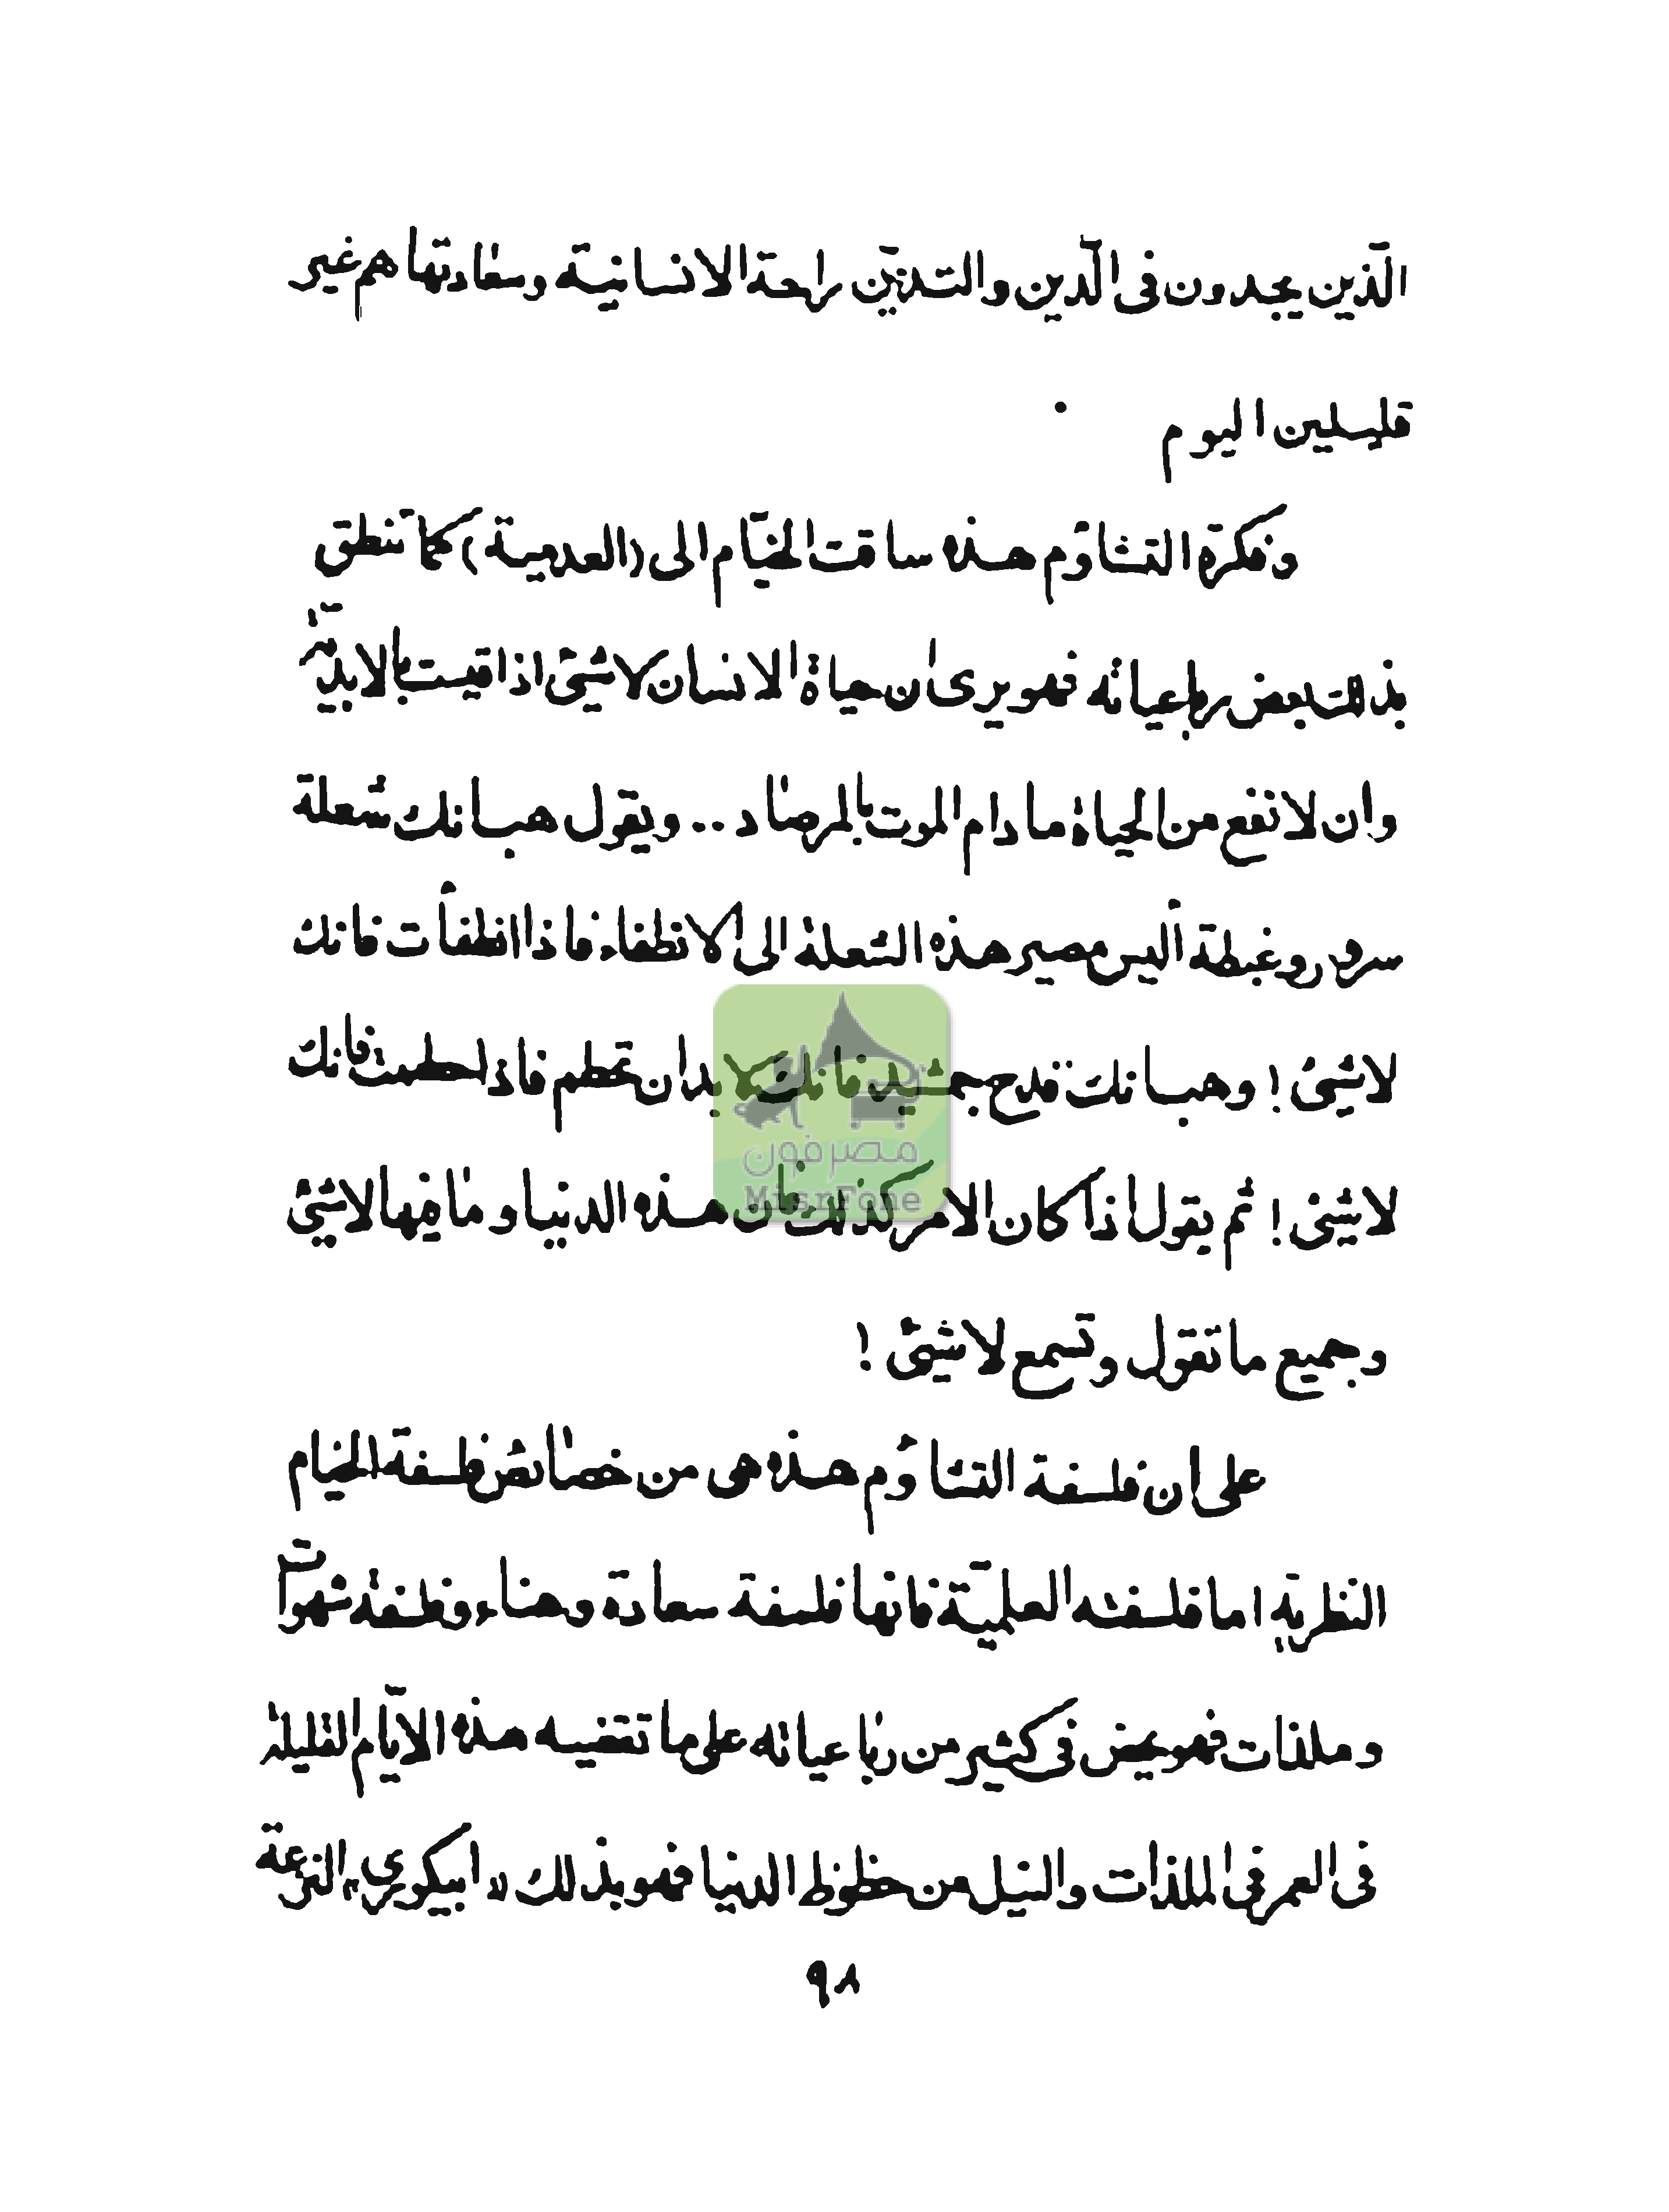 الّذين يجدون فى الّدين والتديّن راحة الانسانية وسعادتها هم غير
قليلين اليوم .
وفكرة التشاؤم هذه ساقت الخيّام الى (العدمية) كما تنطق
بذلك بعض رباعياته فهو يرى ان حياة الانسان لا شيئ اذا قيست بالابديّة
وان لا نفع من الحياة ما دام الموت بالمرصاد .. ويقول هب انك شعلة
سرور وغبطة أليس مصير هذه الشعلة الى الانطفاء فاذا انطفأت فانك
لا شيئ ! وهب انك قدح جمشيد فانك لا بد ان تحطم فاذا حطمت فانك
لا شيئ ! ثم يقول اذا كان الامر كذلك فان هذه الدنيا وما فيها لا شيئ
وجميع ما تقول وتسمع لا شيئ !
على ان فلسفة التشاؤم هذه هى من خصائص فلسفة الخيام
النظرية اما فلسفته العلميّة فانها فلسفة سعادة وهناء وفلسفة شهوات
وملذات فهو يحض فى كثير من رباعياته على ما تقضيه هذه الايّام القليلة
فى العمر فى الملذات والنيل من حظوظ الدنيا فهو بذلك «ابيكوري» النزعة
٩٨
مصرفون
MisrFone